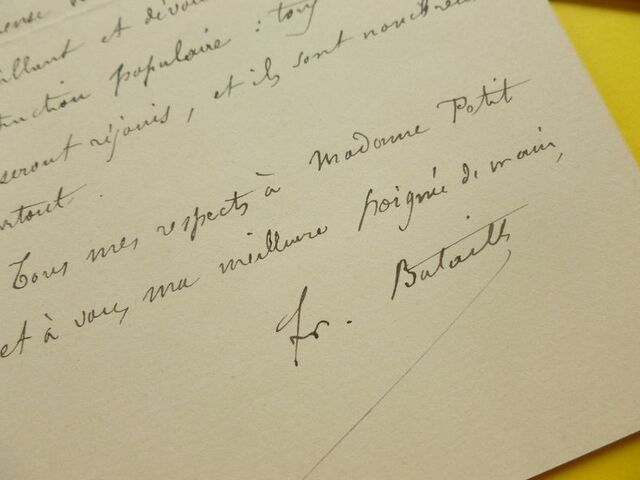 ense
illant et dévou
truction populaire : tous
seront réjouis, et ils sont nombreux
artout.
Tous mes respects à Madame Petit
et à vous, ma meilleure poignée de main,
Fr. Bataille